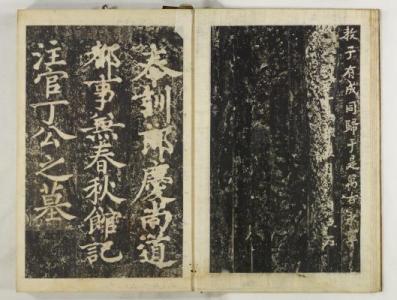 教子有成同歸于是萬古永寧
奉訓郎慶尚道
都事兼春秋館記
注官丁公之墓